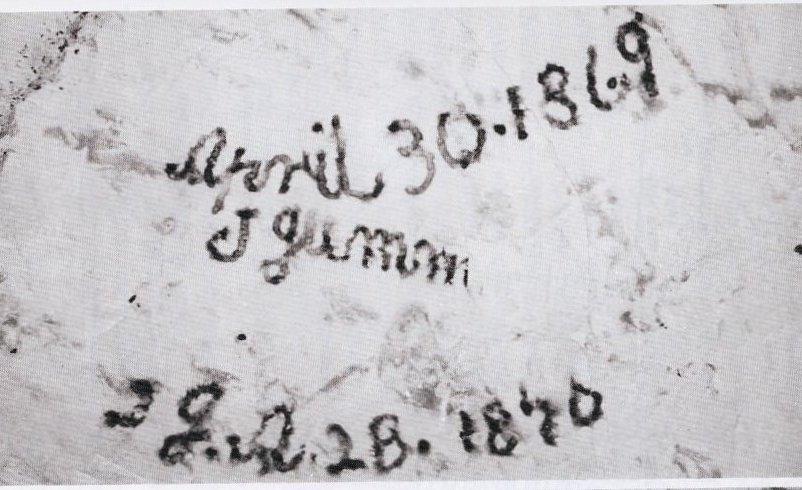 April 30.1869
J gumm
J g. A. 28. 1870